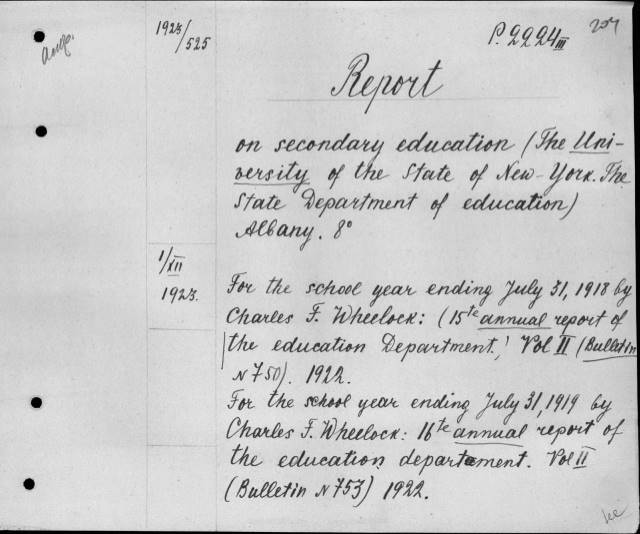 англ.
1923/525
P. 2224 III
207
Report
on secondary education (The Uni-
versity of the State of New-York. The
State Department of education)
Albany. 8°
1/XII
1923.
For the school year ending July 31, 1918 by
Charles F. Wheelock: (15te annual report of
the education Department,) Vol II (Bulletin
N 750). 1922.
For the school year ending July 31, 1919 by
Charles F. Wheelock: 16te annual report of
the education departement. Vol II
(Bulletin N 753) 1922.